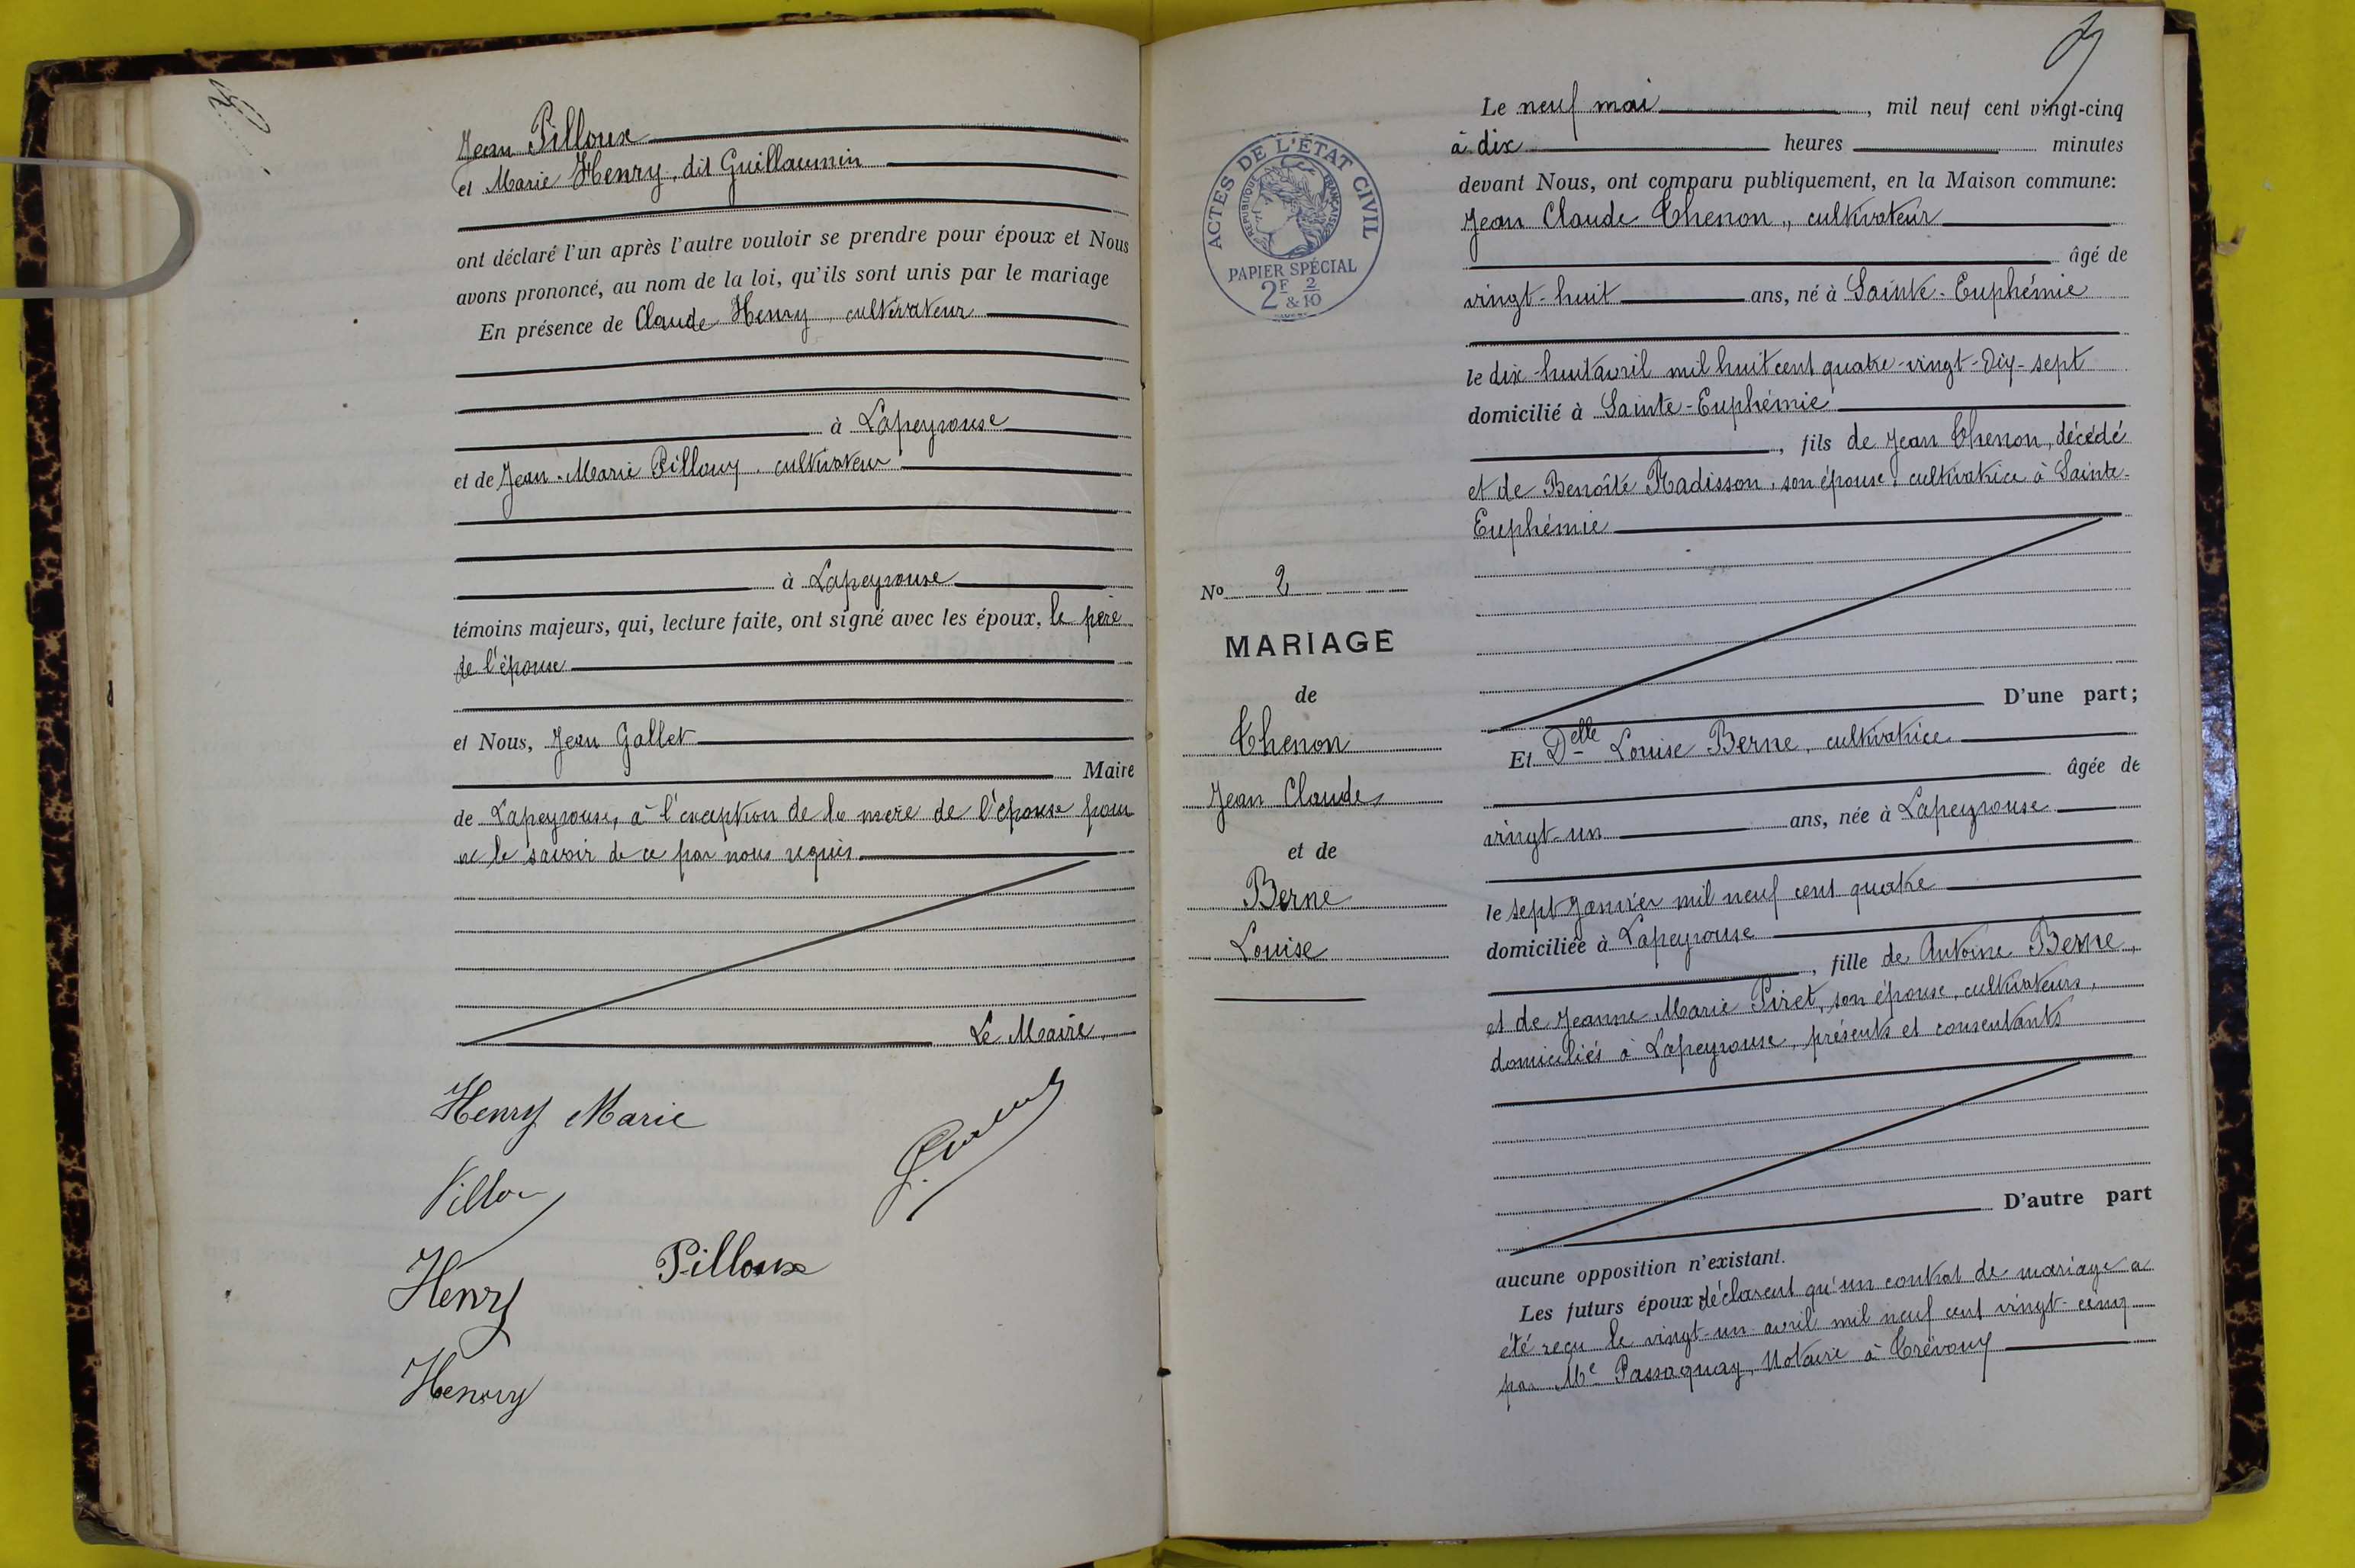 Jean Pilloux
et Marie Henry, dit Guillaumin
ont déclaré l'un après l'autre vouloir se prendre pour époux et Nous
avons prononcé, au nom de la loi, qu'ils sont unis par le mariage
En présence de Claude Henry, cultivateur
à Lapeyrouse
et de Jean-Marie Pilloux, cultivateur
à Lapeyrouse
témoins majeurs, qui, lecture faite, ont signé avec les époux, le père
de l'épouse
et Nous, Jean Gallet
Maire
de Lapeyrouse, à l'exception de la mère de l'épouse pour
ne le savoir de ce par nous requis
Le Maire,
Henry Marie
Henry
Pilloux
Henry
ACTES DE L'ÉTAT CIVIL
RÉPUBLIQUE FRANÇAISE
PAPIER SPÉCIAL
2F 2
& 10
No 2
MARIAGE
de
Thenon
Jean Claude
et de
Berne
Louise
Le neuf mai, mil neuf cent vingt-cinq
à dix heures minutes
devant Nous, ont comparu publiquement, en la Maison commune:
Jean Claude Thenon, cultivateur
âgé de
vingt-huit ans, né à Sainte-Euphémie
le dix-huit avril mil huit cent quatre-vingt-dix-sept
domicilié à Sainte-Euphémie
, fils de Jean Thenon, décédé
et de Benoîte Radisson, son épouse, cultivatrice à Sainte-
Euphémie
D'une part;
Et Delle Louise Berne, cultivatrice
âgée de
vingt-un ans, née à Lapeyrouse
le sept janvier mil neuf cent quatre
domiciliée à Lapeyrouse
, fille de Antoine Berne,
et de Jeanne Marie Piret, son épouse, cultivateurs,
domiciliés à Lapeyrouse, présents et consentants
D'autre part
aucune opposition n'existant.
Les futurs époux déclarent qu'un contrat de mariage a
été reçu le vingt-un avril mil neuf cent vingt-cinq
par Me Passaquay, Notaire à Trévoux